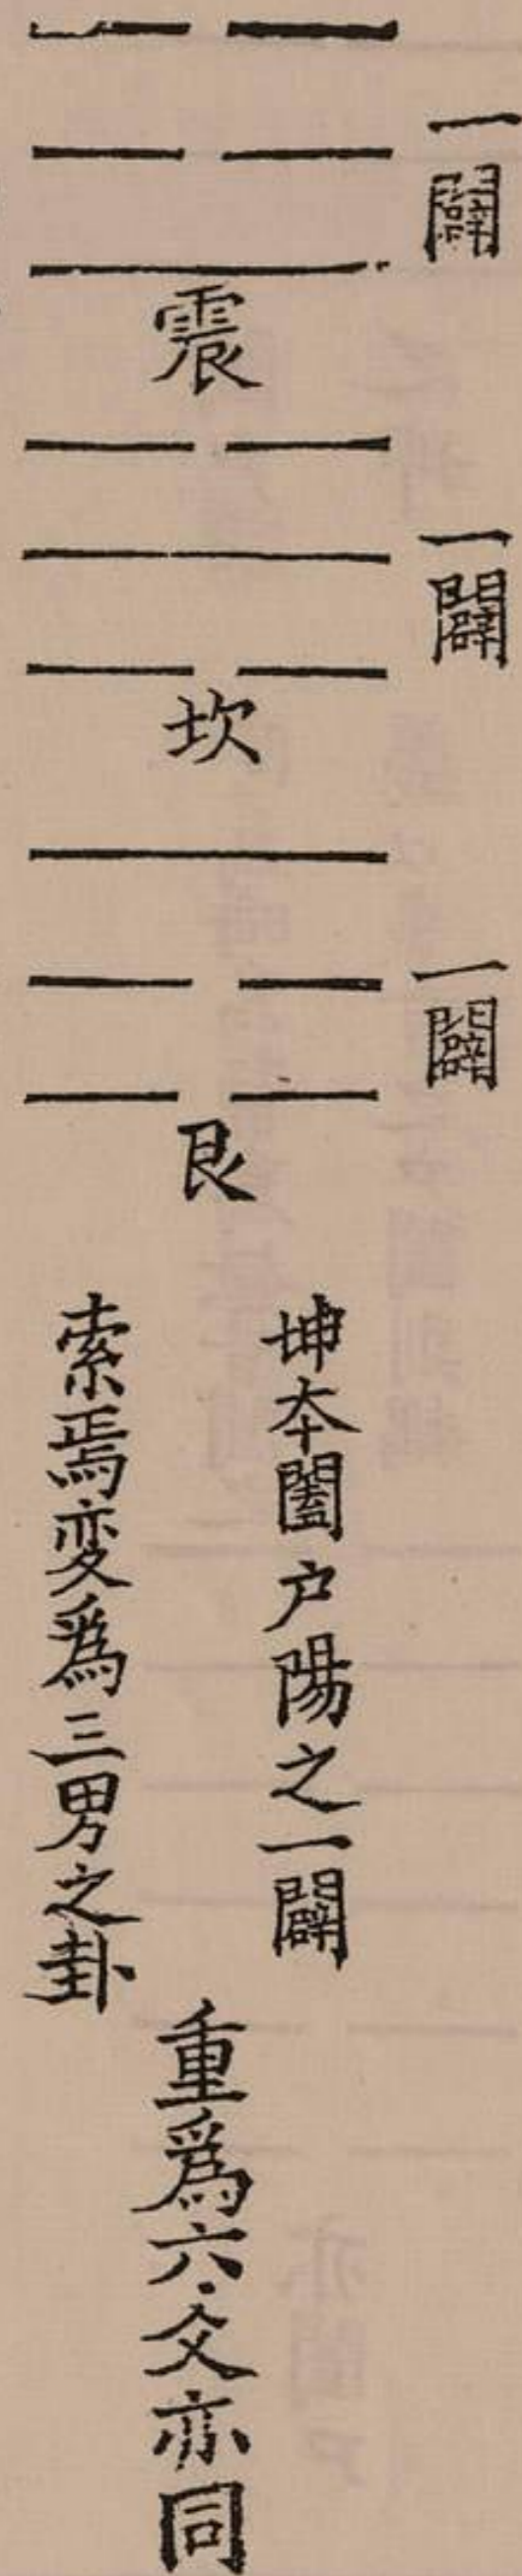 一闢
震
一闢
坎
一闢
艮
坤本闔户陽之一闢
索焉変爲三男之卦
重爲六爻亦同